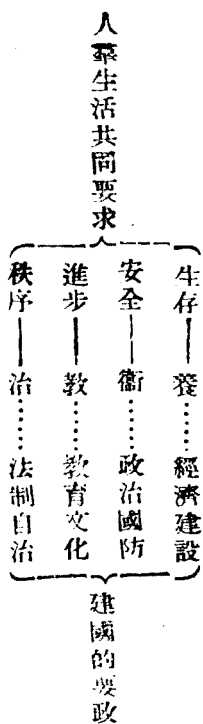 人羣生活共同要求
生存——養……經濟建設
安全——衞……政治國防
進步——教……教育文化
秩序——治……法制自治
建國的要政